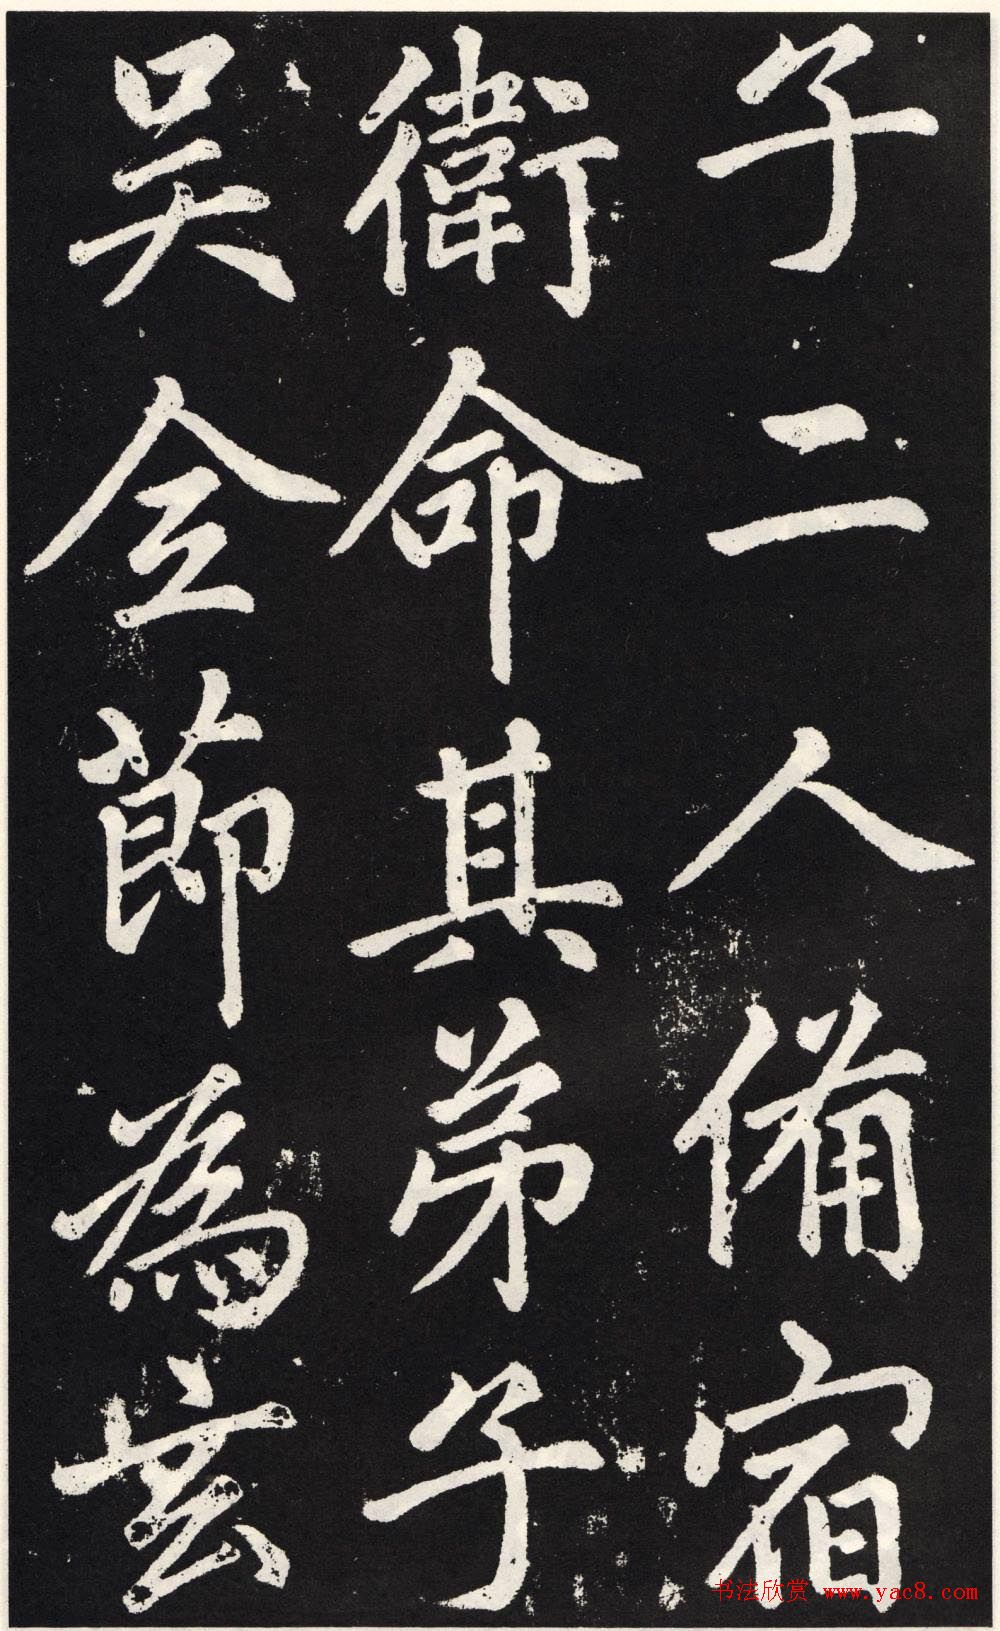 子二人備宿
衛命其弟子
吳全節為玄
书法欣赏 www.yac8.com